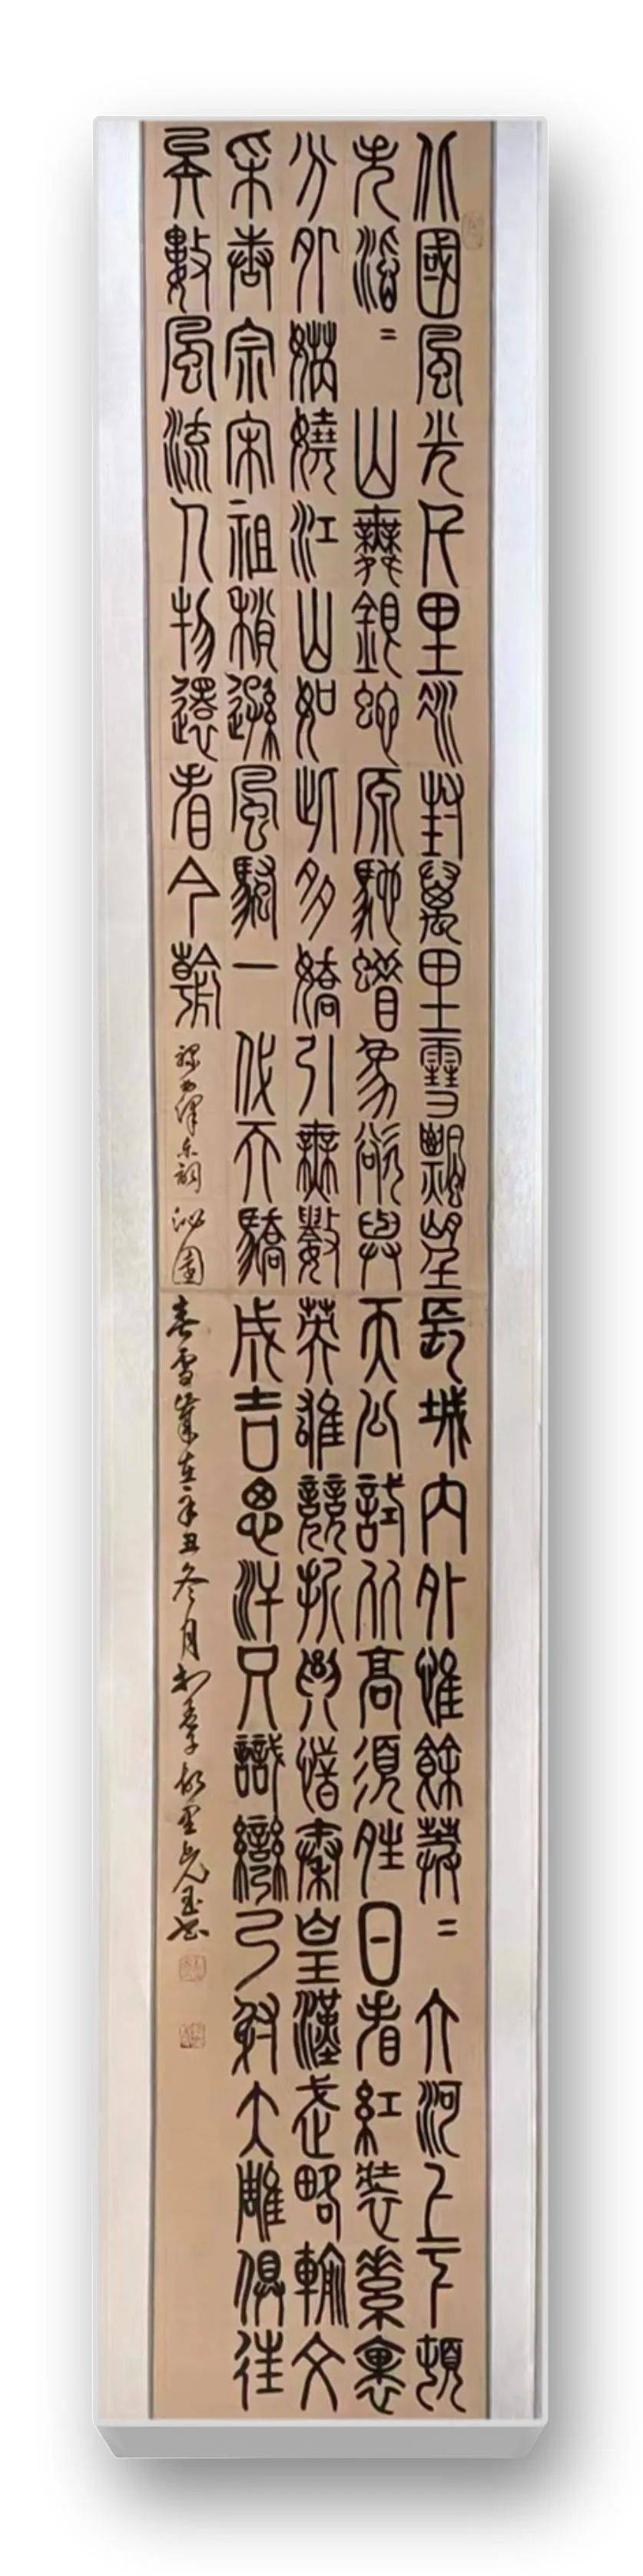 北國風光千里冰封萬里雪飄望長城內外惟餘莽〻大河上下頓
失滔〻山舞銀蛇原馳蠟象欲與天公試比高須晴日看紅裝素裹
分外妖嬈江山如此多嬌引無數英雄競折腰惜秦皇漢武略輸文
采唐宗宋祖稍遜風騷一代天驕成吉思汗只識彎弓射大雕俱往
矣數風流人物還看今朝 錄毛澤東詞沁園春雪歲在辛丑冬月